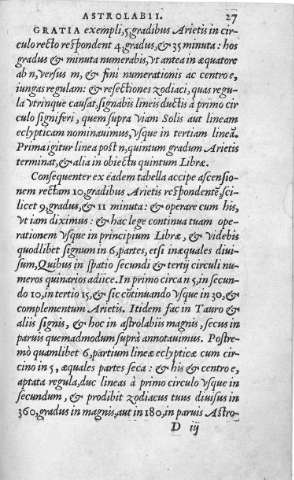 ASTROLABII. 27
GRATIA exempli, 5, gradibus Arietis in cir-
culo recto respondent 4, gradus, & 35 minuta: hos
gradus & minuta numerabis, vt antea in æquatore
ab n, versus m, & fini numerationis ac centro e,
iungas regulam: & resectiones zodiaci, quas regu-
la vtrinque causat, signabis lineis ductis à primo cir
culo signiferi, quem supra viam Solis aut lineam
eclypticam nominauimus, vsque in tertiam lineã.
Prima igitur linea post n, quintum gradum Arietis
terminat, & alia in obiectu quintum Libræ.
Consequenter ex eadem tabella accipe ascensio-
nem rectam 10, gradibus Arietis respondentẽ, sci-
licet 9, gradus, & 11 minuta: & operare cum his,
vt iam diximus: & hac lege continua tuam ope-
rationem vsque in principium Libræ, & videbis
quodlibet signum in 6, partes, etsi inæquales diui-
sum, Quibus in spatio secundi & tertij circuli nu-
meros quinarios adiice. In primo circa n 5, in secun-
do 10, in tertio 15, & sic cõtinuando vsque in 30, &
complementum Arietis. Itidem fac in Tauro &
aliis signis, & hoc in astrolabiis magnis, secus in
paruis quemadmodum suprà annotauimus. Postre-
mò quamlibet 6, partium lineæ eclypticæ cum cir-
cino in 5, æquales partes seca: & his & centro e,
aptata regula, duc lineas à primo circulo vsque in
secundum, & prodibit zodiacus tuus diuisus in
360, gradus in magnis, aut in 180, in paruis Astro-
D iij